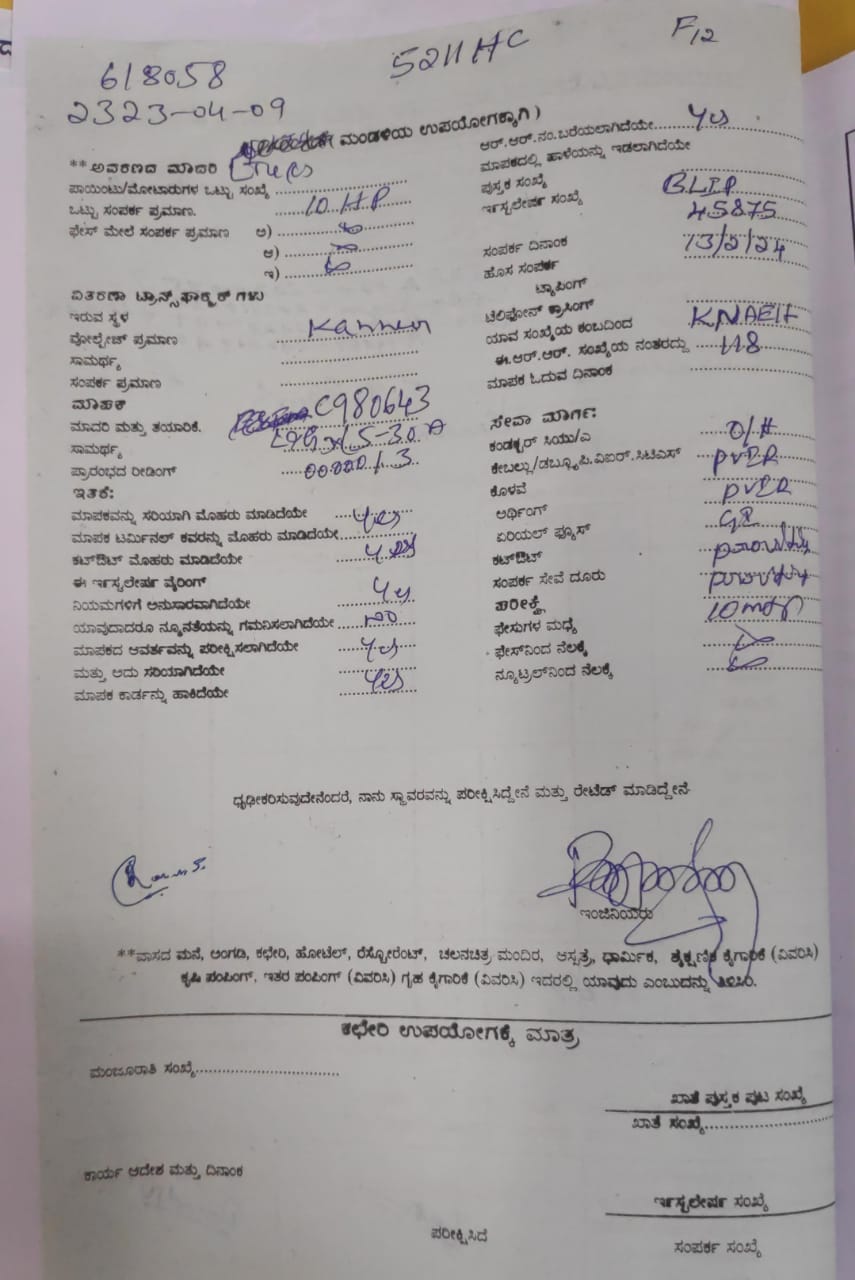 5211HC
F12
618058
2323-04-09
ಮಂಡಳಿಯ ಉಪಯೋಗಕ್ಕಾಗಿ )
** ಅವರಣದ ಮಾದರಿ
ಪಾಯಿಂಟು/ಮೋಟಾರುಗಳ ಒಟ್ಟು ಸಂಖ್ಯೆ
ಒಟ್ಟು ಸಂಪರ್ಕ ಪ್ರಮಾಣ. 10 HP
ಫೇಸ್ ಮೇಲೆ ಸಂಪರ್ಕ ಪ್ರಮಾಣ ಅ)
ಆ)
ಇ)
ವಿತರಣಾ ಟ್ರಾನ್ಸ್‌ಫಾರ್ಮರ್ ಗಳು
ಇರುವ ಸ್ಥಳ
ವೋಲ್ಟೇಜ್ ಪ್ರಮಾಣ
ಸಾಮರ್ಥ್ಯ
ಸಂಪರ್ಕ ಪ್ರಮಾಣ
ಮಾಪಕ C980643
ಮಾದರಿ ಮತ್ತು ತಯಾರಿಕೆ.
ಸಾಮರ್ಥ್ಯ 5-30.A
ಪ್ರಾರಂಭದ ರೀಡಿಂಗ್
ಇತರೆ:
ಮಾಪಕವನ್ನು ಸರಿಯಾಗಿ ಮೊಹರು ಮಾಡಿದೆಯೇ Yes
ಮಾಪಕ ಟರ್ಮಿನಲ್ ಕವರನ್ನು ಮೊಹರು ಮಾಡಿದೆಯೇ
ಕಟ್‌ಔಟ್ ಮೊಹರು ಮಾಡಿದೆಯೇ Yes
ಈ ಇನ್ಸ್ಟಲೇಷನ್ ವೈರಿಂಗ್
ನಿಯಮಗಳಿಗೆ ಅನುಸಾರವಾಗಿದೆಯೇ Yes
ಯಾವುದಾದರೂ ನ್ಯೂನತೆಯನ್ನು ಗಮನಿಸಲಾಗಿದೆಯೇ No
ಮಾಪಕದ ಆವರ್ತವನ್ನು ಪರೀಕ್ಷಿಸಲಾಗಿದೆಯೇ Yes
ಮತ್ತು ಅದು ಸರಿಯಾಗಿದೆಯೇ
ಮಾಪಕ ಕಾರ್ಡನ್ನು ಹಾಕಿದೆಯೇ Yes
ಆರ್.ಆರ್.ನಂ.ಬರೆಯಲಾಗಿದೆಯೇ Yes
ಮಾಪಕದಲ್ಲಿ ಹಾಳೆಯನ್ನು ಇಡಲಾಗಿದೆಯೇ
ಪುಸ್ತಕ ಸಂಖ್ಯೆ
ಇನ್ಸ್ಟಲೇಷನ್ ಸಂಖ್ಯೆ BLIP
45875
ಸಂಪರ್ಕ ದಿನಾಂಕ 13/2/24
ಹೊಸ ಸಂಪರ್ಕ
ಟ್ಯಾಪಿಂಗ್
ಟೆಲಿಫೋನ್ ಕ್ರಾಸಿಂಗ್
ಯಾವ ಸಂಖ್ಯೆಯ ಕಂಬದಿಂದ
ಈ.ಆರ್.ಆರ್. ಸಂಖ್ಯೆಯ ನಂತರದ್ದು 118
ಮಾಪಕ ಓದುವ ದಿನಾಂಕ
ಸೇವಾ ಮಾರ್ಗ:
ಕಂಡಕ್ಟರ್ ಸಿಯು/ಎ O/H
ಕೇಬಲ್ಲು/ಡಬ್ಲ್ಯೂ.ಪಿ.ವಿಐಆರ್.ಸಿಟಿಎಸ್
ಕೊಳವೆ
ಅರ್ಥಿಂಗ್
ಏರಿಯಲ್ ಫ್ಯೂಸ್
ಕಟ್‌ಔಟ್
ಸಂಪರ್ಕ ಸೇವೆ ದೂರು
ಪರೀಕ್ಷೆ
ಫೇಸುಗಳ ಮಧ್ಯೆ
ಫೇಸ್‌ನಿಂದ ನೆಲಕ್ಕೆ
ನ್ಯೂಟ್ರಲ್‌ನಿಂದ ನೆಲಕ್ಕೆ
ಧೃಢೀಕರಿಸುವುದೇನೆಂದರೆ, ನಾನು ಸ್ಥಾವರವನ್ನು ಪರೀಕ್ಷಿಸಿದ್ದೇನೆ ಮತ್ತು ರೇಟೆಡ್ ಮಾಡಿದ್ದೇನೆ
ಇಂಜಿನಿಯರು
**ವಾಸದ ಮನೆ, ಅಂಗಡಿ, ಕಛೇರಿ, ಹೋಟೆಲ್, ರೆಸ್ಟೋರೆಂಟ್, ಚಲನಚಿತ್ರ ಮಂದಿರ, ಆಸ್ಪತ್ರೆ, ಧಾರ್ಮಿಕ, ಶೈಕ್ಷಣಿಕ ಕೈಗಾರಿಕೆ (ವಿವರಿಸಿ)
ಕೃಷಿ ಪಂಪಿಂಗ್, ಇತರ ಪಂಪಿಂಗ್ (ವಿವರಿಸಿ) ಗೃಹ ಕೈಗಾರಿಕೆ (ವಿವರಿಸಿ) ಇದರಲ್ಲಿ ಯಾವುದು ಎಂಬುದನ್ನು ತಿಳಿಸಿರಿ.
ಕಛೇರಿ ಉಪಯೋಗಕ್ಕೆ ಮಾತ್ರ
ಮಂಜೂರಾತಿ ಸಂಖ್ಯೆ
ಖಾತೆ ಪುಸ್ತಕ ಪುಟ ಸಂಖ್ಯೆ
ಖಾತೆ ಸಂಖ್ಯೆ
ಕಾರ್ಯ ಆದೇಶ ಮತ್ತು ದಿನಾಂಕ
ಇನ್ಸ್ಟಲೇಷನ್ ಸಂಖ್ಯೆ
ಪರೀಕ್ಷಿಸಿದೆ
ಸಂಪರ್ಕ ಸಂಖ್ಯೆ